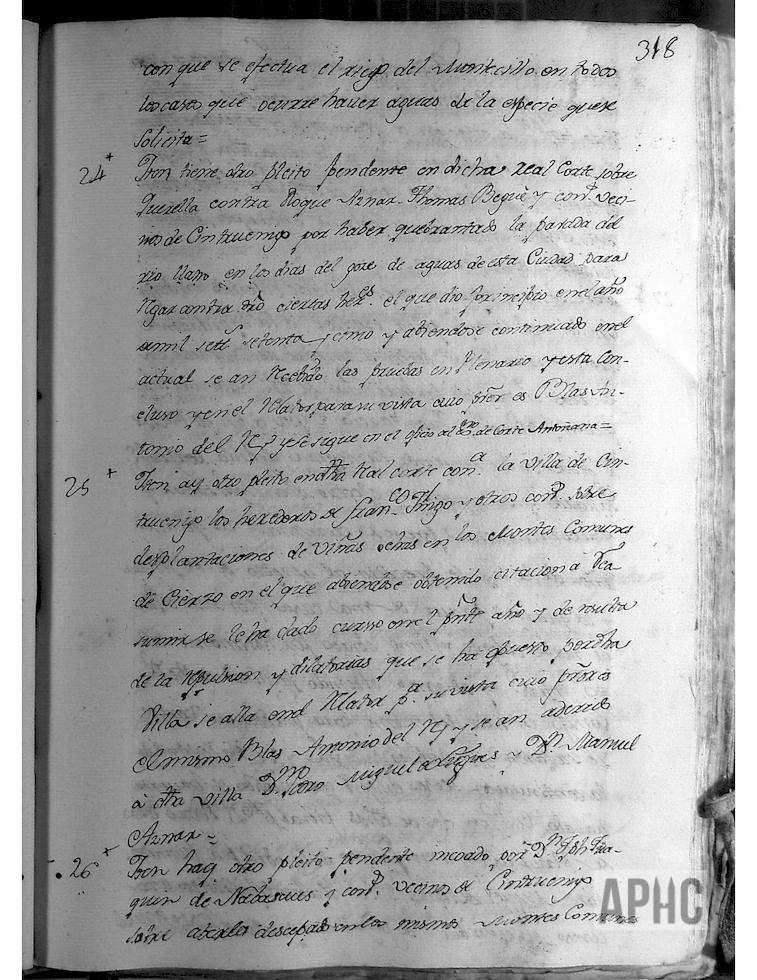 318
con que se efectua el riego del Montecillo en todos
los casos que ocurre haver aguas de la especie que se
solicita =
24 + Iten tiene otro pleito pendente en dicha real Corte sobre
Querella contra Roque Aznar. Thomas Begue y conp. veci-
nos de Cintruenigo por haber quebrantado la parada del
rio llano en los dias del goze de aguas de esta Ciudad para
regar contra dro ciertas hered.s el que dio principio en el año
de mil set.s setenta y cinco y abiendose continuado en el
actual se an recibido las pruebas en Plenario y esta Con-
cluso y en el Relator para su vista cuio Prör es Blas An-
tonio del Rey y se sigue en el oficio del de Corte Antoñana =
25 + Iten ay otro pleito en dha Real corte con.a la villa de Cin-
truenigo los herederos de Fran.co Trigo y otros conp. sobre
desplantaciones de viñas echas en los Montes Comunes
de Cierzo en el que abiendose obtenido citacion a
se le ha dado curso en el pnte año y de resulta
de la repulsion y dilatorias que se ha opuesto por dha
Villa se alla en el Relator p.a su vista cuio Prör es
el mismo Blas Antonio del Rey y se an aderido
a dha villa D.n Pedro Miguel de Ligues y D.n Manuel
Aznar =
26 + Iten hay otro pleito pendente incoado por D.n Jph Joa-
quin de Nabasques y conp. vecinos de Cintruenigo
sobre aberles descepado en los mismos Montes Comunes
APHC